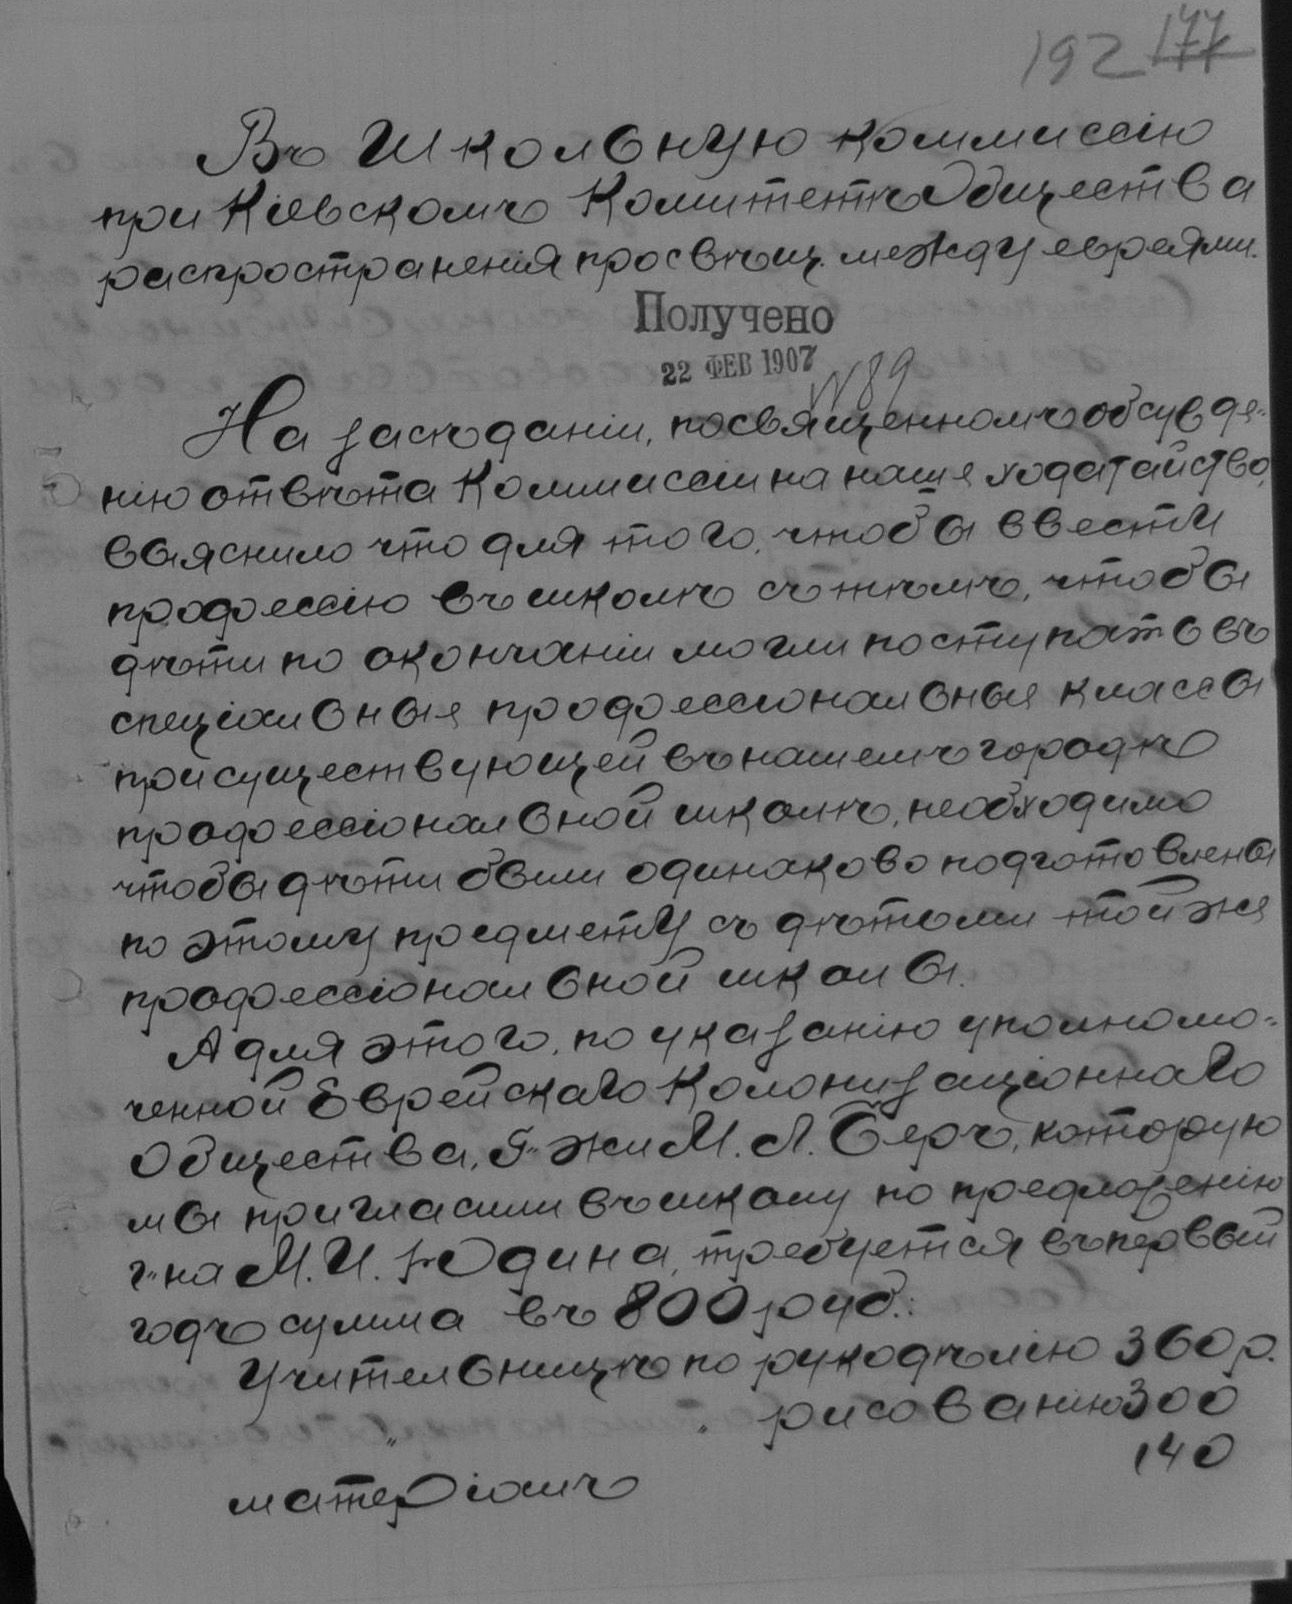 192 177
Въ Школьную Коммиссію
при Кіевскомъ Комитетѣ Общества
распространенія просвѣщ. между евреями.
Получено
22 ФЕВ 1907
№ 89
На засѣданіи, посвященномъ обсужде-
нію отвѣта Коммиссіи на наше ходатайство,
выяснило что для того, чтобы ввести
профессію въ школѣ съ тѣмъ, чтобы
дѣти по окончаніи могли поступать въ
спеціальныя профессіональныя классы
при существующей въ нашемъ городѣ
профессіональной школѣ, необходимо
чтобы дѣти были одинаково подготовлены
по этому предмету съ дѣтьми той же
профессіональной школы.
А для этого, по указанію уполномо-
ченной Еврейскаго Колонизаціоннаго
Общества, г-жи М. Л. Беръ, которую
мы пригласили въ школу по предложенію
г-на М. И. Юдина, требуется въ первый
годъ сумма въ 800 руб.:
Учительницѣ по рукодѣлію 360 р.
" " рисованію 300
матеріалъ 140